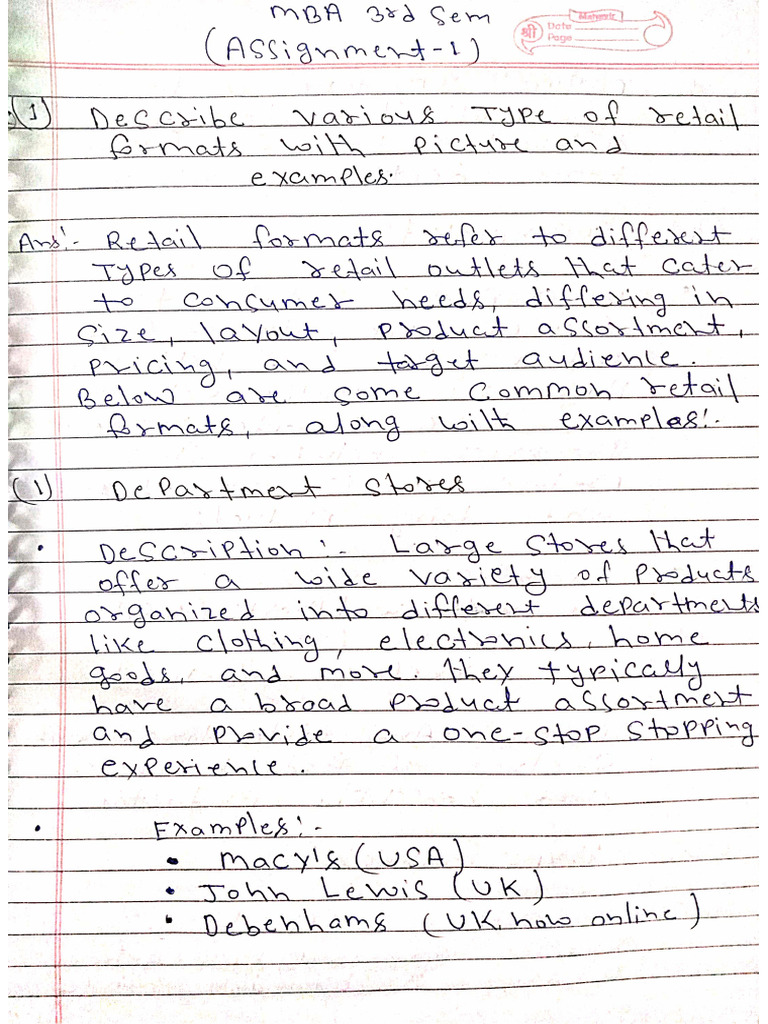 MBA 3rd Sem
(Assignment-1)
श्री
Date
Page
(1) Describe various Type of retail
formats with picture and
examples.
Ans:- Retail formats refer to different
Types of retail outlets that cater
to consumer needs, differing in
size, layout, product assortment,
pricing, and target audience.
Below are some common retail
formats, along with examples:-
(1) Department stores
• Description:- Large stores that
offer a wide variety of products
organized into different departments
like clothing, electronics, home
goods, and more. They typically
have a broad product assortment
and provide a one-stop stopping
experience.
• Examples:-
• Macy's (USA)
• John Lewis (UK)
• Debenhams (UK, now online)